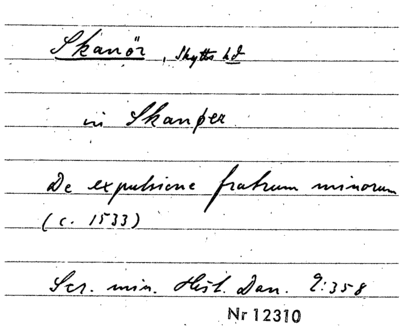 Skanör, Skytts hd
in Skanþer
De expulsione fratrum minorum
(c. 1533)
Scr. min. Hist. Dan. 2:358
Nr 12310